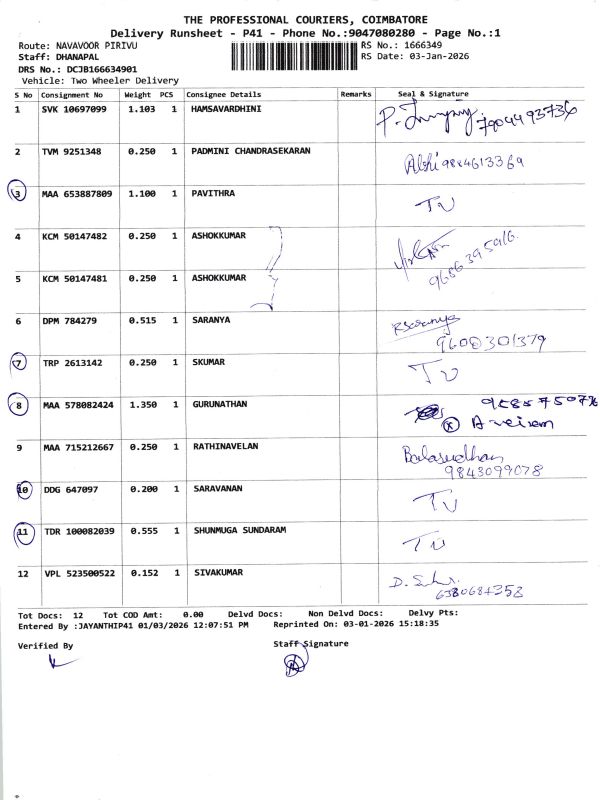 THE PROFESSIONAL COURIERS, COIMBATORE
Delivery Runsheet - P41 - Phone No.:9047080280 - Page No.:1
Route: NAVAVOOR PIRIVU RS No.: 1666349
Staff: DHANAPAL RS Date: 03-Jan-2026
DRS No.: DCJB166634901
Vehicle: Two Wheeler Delivery
S No Consignment No Weight PCS Consignee Details Remarks Seal & Signature
1 SVK 10697099 1.103 1 HAMSAVARDHINI 7904493736
2 TVM 9251348 0.250 1 PADMINI CHANDRASEKARAN Abhi 9884613369
3 MAA 653887809 1.100 1 PAVITHRA TU
4 KCM 50147482 0.250 1 ASHOKKUMAR
5 KCM 50147481 0.250 1 ASHOKKUMAR 9686395916
6 DPM 784279 0.515 1 SARANYA RSaranya
9600301379
7 TRP 2613142 0.250 1 SKUMAR TU
8 MAA 578082424 1.350 1 GURUNATHAN
9 MAA 715212667 0.250 1 RATHINAVELAN Balasudhan
9843099078
10 DDG 647097 0.200 1 SARAVANAN TU
11 TDR 100082039 0.555 1 SHUNMUGA SUNDARAM TU
12 VPL 523500522 0.152 1 SIVAKUMAR
6380684358
Tot Docs: 12 Tot COD Amt: 0.00 Delvd Docs: Non Delvd Docs: Delvy Pts:
Entered By :JAYANTHIP41 01/03/2026 12:07:51 PM Reprinted On: 03-01-2026 15:18:35
Verified By Staff Signature